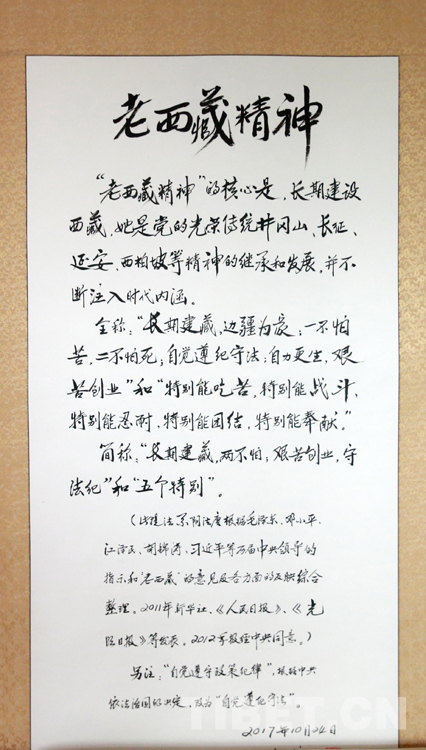 老西藏精神
“老西藏精神”的核心是，长期建设
西藏，她是党的光荣传统井冈山、长征、
延安、西柏坡等精神的继承和发展，并不
断注入时代内涵。
全称：“长期建藏，边疆为家；一不怕
苦，二不怕死；自觉遵纪守法；自力更生，艰
苦创业”和“特别能吃苦，特别能战斗、
特别能忍耐，特别能团结，特别能奉献。”
简称：“长期建藏，两不怕；艰苦创业，守
法纪”和“五个特别”。
（此提法系阴法唐根据毛泽东、邓小平、
江泽民、胡锦涛、习近平等历届中央领导的
指示和“老西藏”的意见及各方面的反映综合
整理。2011年新华社、《人民日报》、《光
明日报》等发表。2012年报经中央同意。）
另注：“自觉遵守政策纪律”，根据中央
依法治国的决定，改为“自觉遵纪守法”。
2017年10月24日
TIBET.CN